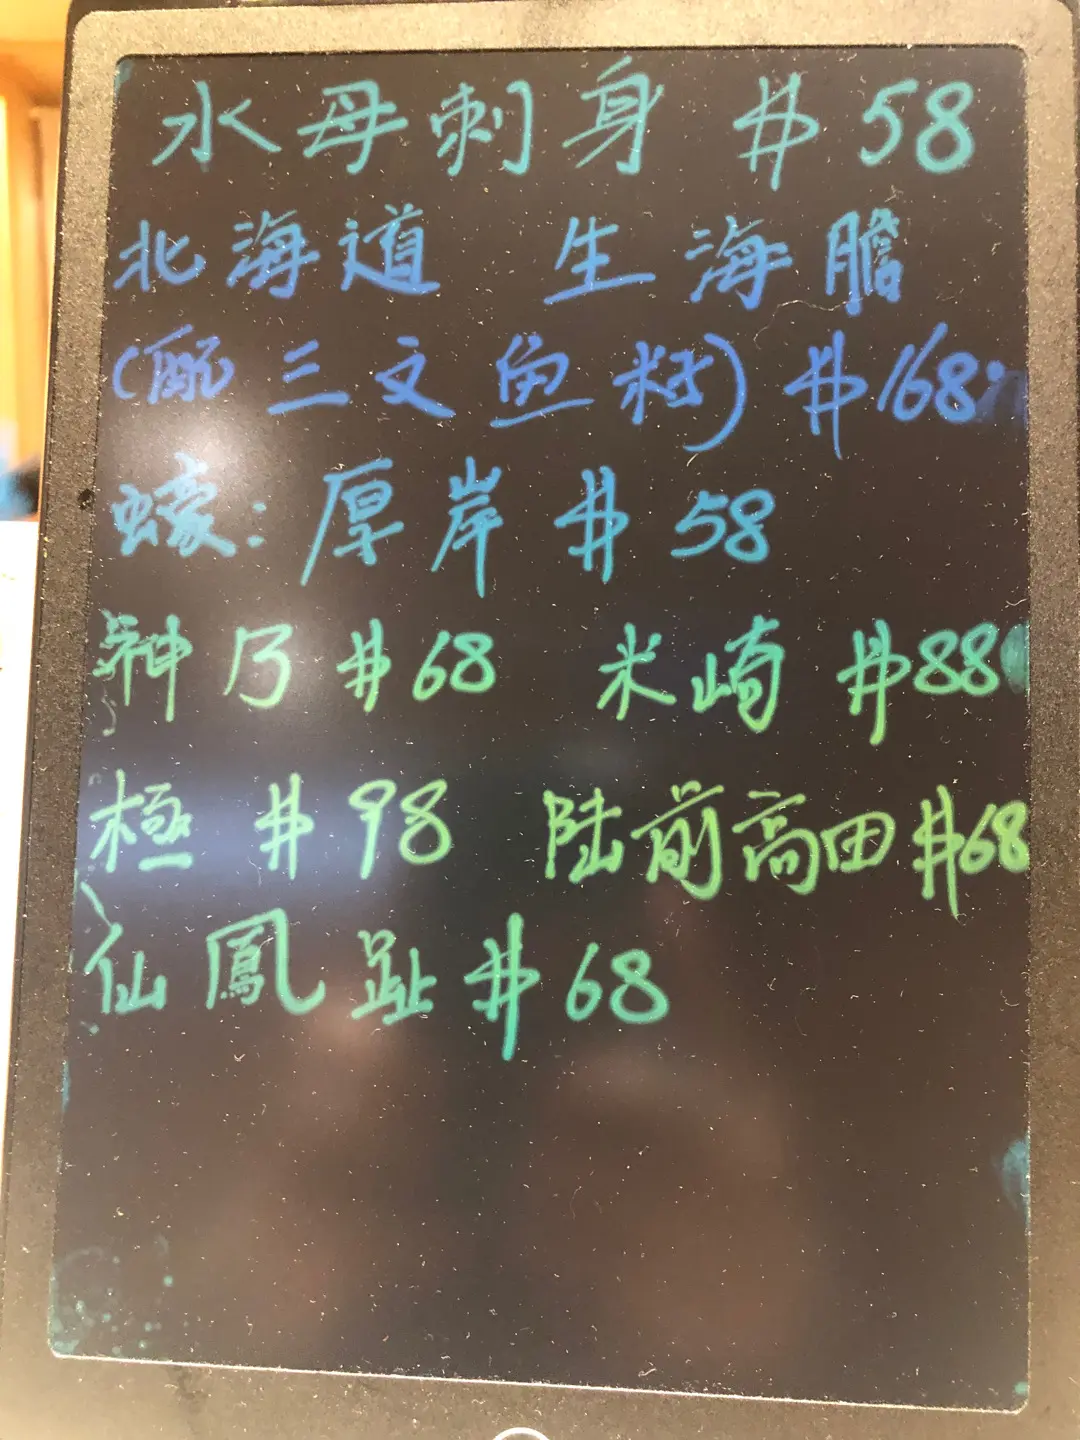 水母刺身 $58
北海道 生海膽
(配三文魚籽) $168
蠔: 厚岸 $58
神乃 $68 米崎 $88
極 $98 陸前高田 $68
仙鳳趾 $68